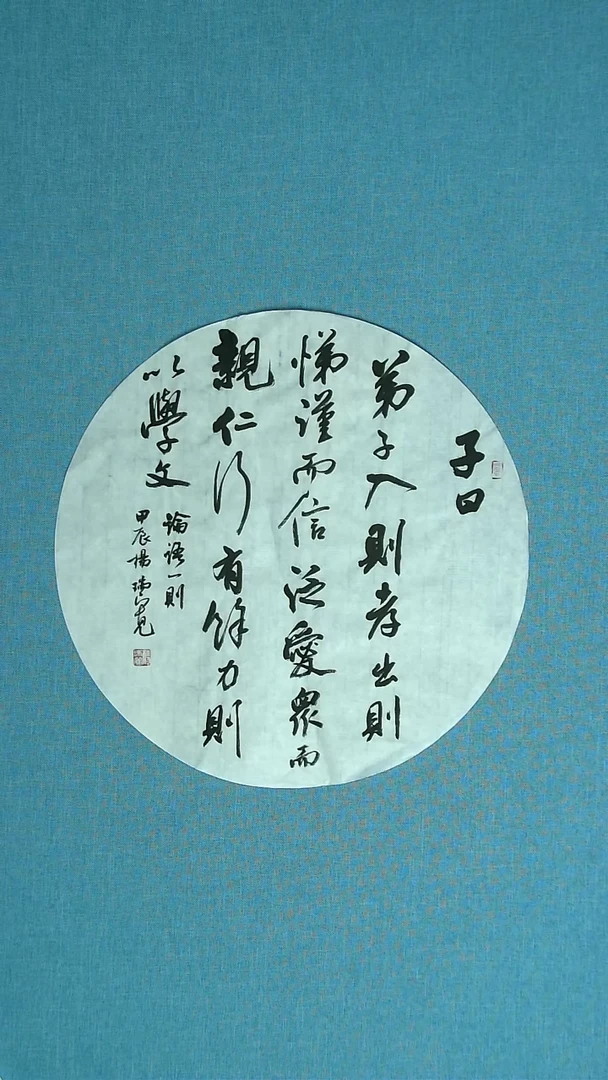 子曰
弟子入則孝出則
悌謹而信泛愛眾而
親仁行有餘力則
以學文
論語一則
甲辰楊瑞